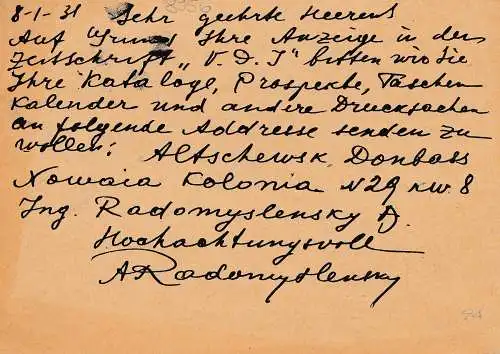 8-1-31 Sehr geehrte Heeren!
Auf Grund Ihre Anzeige in der
Zeitschrift „V. D. I" bitten wir Sie
Ihre Kataloge, Prospekte, Taschen
Kalender und andere Drucksachen
an folgende Addresse senden zu
wollen: Altschewsk, Donbass
Nowaia Kolonia N29 kw. 8
Ing. Radomyslensky A.
Hochachtungsvoll
ARadomyslensky